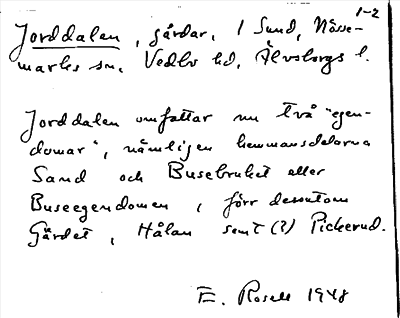 1-2
Jorddalen, gårdar, 1 Sund, Nösse-
marks sn, Vedbo hd, Älvsborgs l.
Jorddalen omfattar nu två "egen-
domar", nämligen hemmansdelarna
Sand och Busebruket eller
Buseegendomen, förr dessutom
Gärdet, Hålan samt (?) Pickerud.
E. Rosell 1948